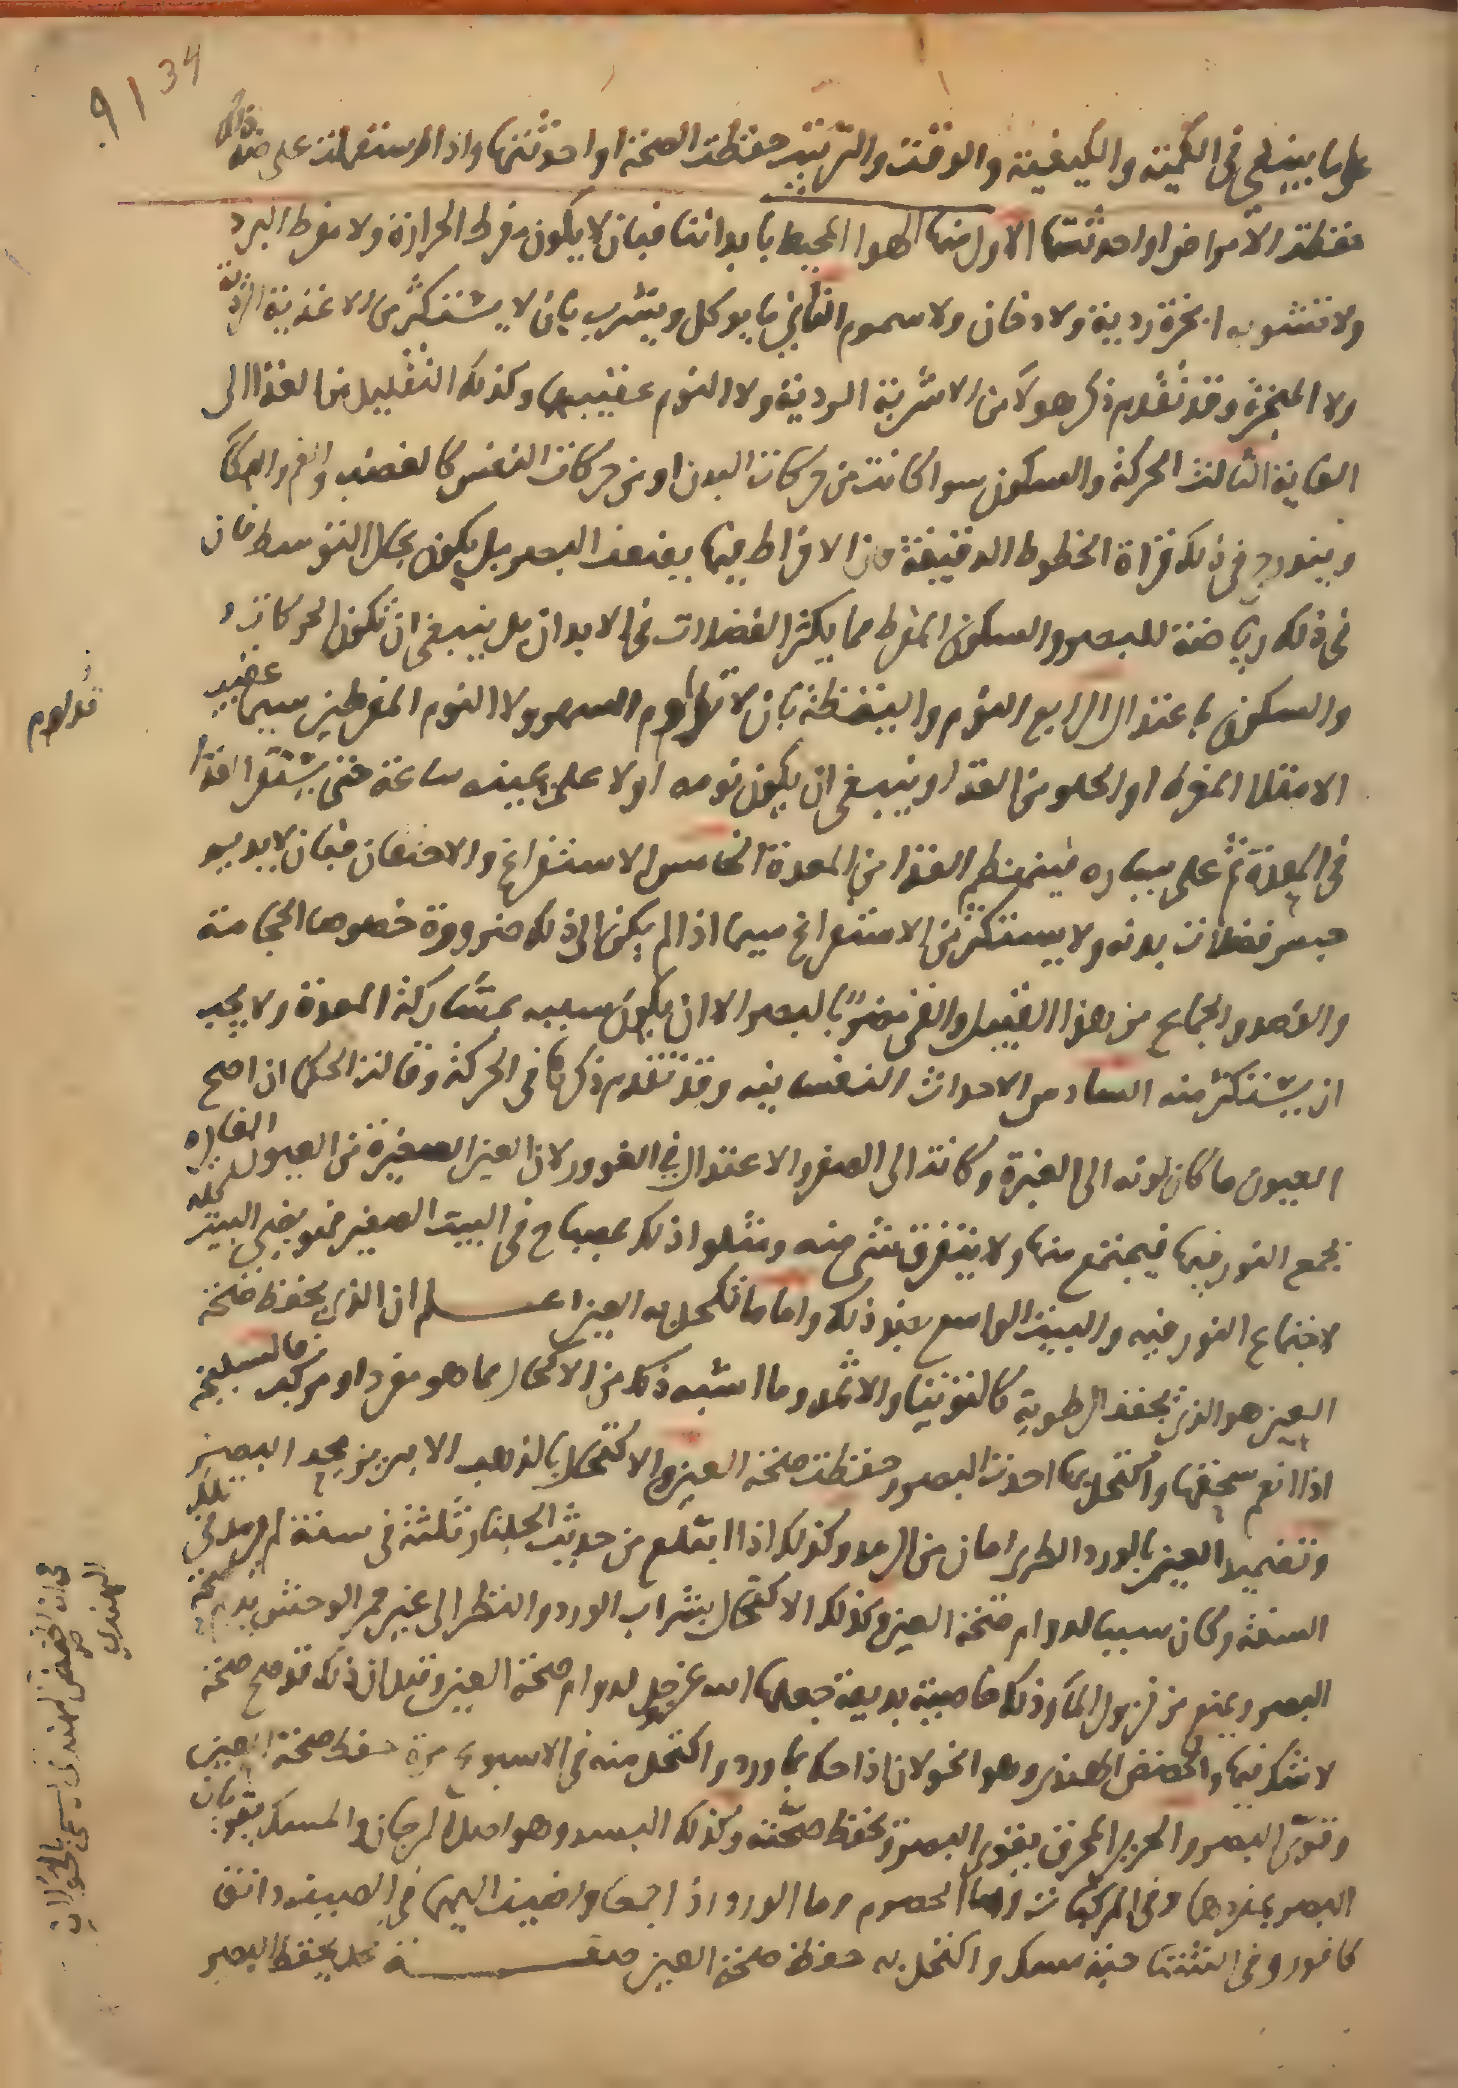 9134
على ما ينبغي في الكمية والكيفية والوقت والترتيب حفظت الصحة او احدثتها واذا استعملت على ضد ذلك
حفظت الامراض او احدثتها الاول منها الهوا المحيط بابداننا فبان لا يكون مفرط الحرارة ولا مفرط البرد
ولا تشوبه ابخرة ردية ولا دخان ولا سموم الثاني ما يوكل ويشرب بان لا يستكثر من الاغذية الردية
ولا المبخرة وقد تقدم ذكر هولا من الاشربة الردية ولا النوم عقيبها وكذلك التقليل من الغذا الى
الغاية الثالث الحركة والسكون سوا كانت من حركات البدن او من حركات النفس كالغضب والغم والبكا
ويندرج في ذلك قراة الخطوط الدقيقة فان الافراط فيها يضعف البصر بل يكون بحال التوسط فان
في ذلك رياضة للبصر والسكون المفرط مما يكثر الفضلات في الابدان بل ينبغي ان تكون الحركات
والسكون باعتدال الرابع النوم واليقظة بان لا يداوم السهر ولا النوم المفرطين سيما عقيب
الامتلا المفرط او الخلو من الغذا وينبغي ان يكون نومه اولا على يمينه ساعة حتى يستقر الغذا
في المعدة ثم على يساره لينهضم الغذا من المعدة الخامس الاستفراغ والاحتقان فبان لا يديم
حبس فضلات بدنه ولا يستكثر من الاستفراغ سيما اذا لم يكن الى ذلك ضرورة خصوصا الحجامة
والفصد والجماع من هذا القبيل والقي مضر بالبصر الا ان يكون سببه بمشاركة المعدة ولا يجب
ان يستكثر منه السادس الاحداث النفسانيه وقد تقدم ذكرها في الحركة وقالت الحكما ان اصح
العيون ما كان لونه الى الغبرة وكانت الى الصغر والاعتدال في الغوور لان العين الصغيرة من العيون الغايره
يجمع النور فيها فيجتمع منها ولا يتفرق شي منه ومثلوا ذلك بمصباح في البيت الصغير فهو يضي البيت كله
لاجتماع النور فيه والبيت الواسع بضد ذلك واما ما تكحل به العين اعلم ان الذي يحفظ صحة
العين هو الذي يجفف الرطوبة كالتوتيا والاثمد وما اشبه ذلك من الاكحال مما هو مفرد او مركب فالسليخة
اذا انعم سحقها واكتحل بها احدت البصر وحفظت صحة العين والاكتحال بالذهب الابريز يحد البصر
وتضميد العين بالورد الطري امان من الرمد وكذلك اذا ابتلع من حديث الجلنار ثلثة في سنة لم يرمد في تلك
السنة وكان سببا لدوام صحة العين وكذلك الاكتحال بشراب الورد والنظر الى عين حمر الوحش يديم صحة
البصر ويمنع من نزول الما وذلك خاصية بديعة جعلها الله عز وجل لدوام صحة العين وقيل ان ذلك توضح صحة
لا شك فيها والحضض الهندي وهو الخولان اذا حك بماورد واكتحل منه في الاسبوع مرة حفظ صحة العين
وقوى البصر والحرير المحرق يقوي البصر ويحفظ صحته وكذلك البسد وهو اصل المرجان والمسك يقويان
البصر بمفردهما وفي المركبات وما الحصرم وما الورد اذا اجتمعا واضيف اليهما في الصيف دانق
كافور وفي الشتا حبة مسك واكتحل به حفظ صحة العين صفة كحل يحفظ البصر
في ان الحضض الهندي يسمى بالخولان
الهندي